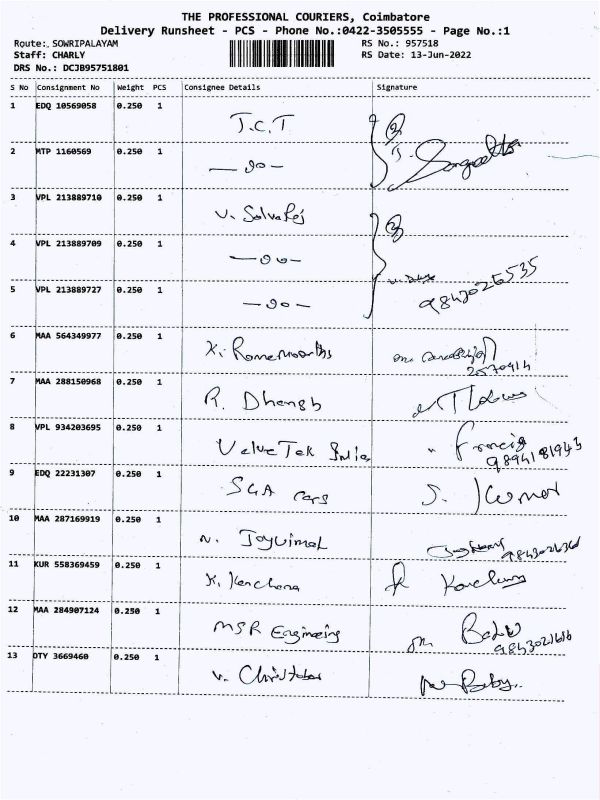 THE PROFESSIONAL COURIERS, Coimbatore
Delivery Runsheet - PCS - Phone No.:0422-3505555 - Page No.:1
Route: SOWRIPALAYAM RS No.: 957518
Staff: CHARLY RS Date: 13-Jun-2022
DRS No.: DCJB95751801
S No Consignment No Weight PCS Consignee Details Signature
1 EDQ 10569058 0.250 1 J.C.T
2 MTP 1160569 0.250 1
3 VPL 213889710 0.250 1 V.
4 VPL 213889709 0.250 1
5 VPL 213889727 0.250 1 9843026535
6 MAA 564349977 0.250 1 K.
7 MAA 288150968 0.250 1 R.
8 VPL 934203695 0.250 1 ValveTek India Francis
9894181943
9 EDQ 22231307 0.250 1 SGA Cars S. Kumar
10 MAA 287169919 0.250 1 N.
11 KUR 558369459 0.250 1 K. Kanchana
12 MAA 284907124 0.250 1 MSR Engineering Babu
13 DTY 3669460 0.250 1 V. Baby